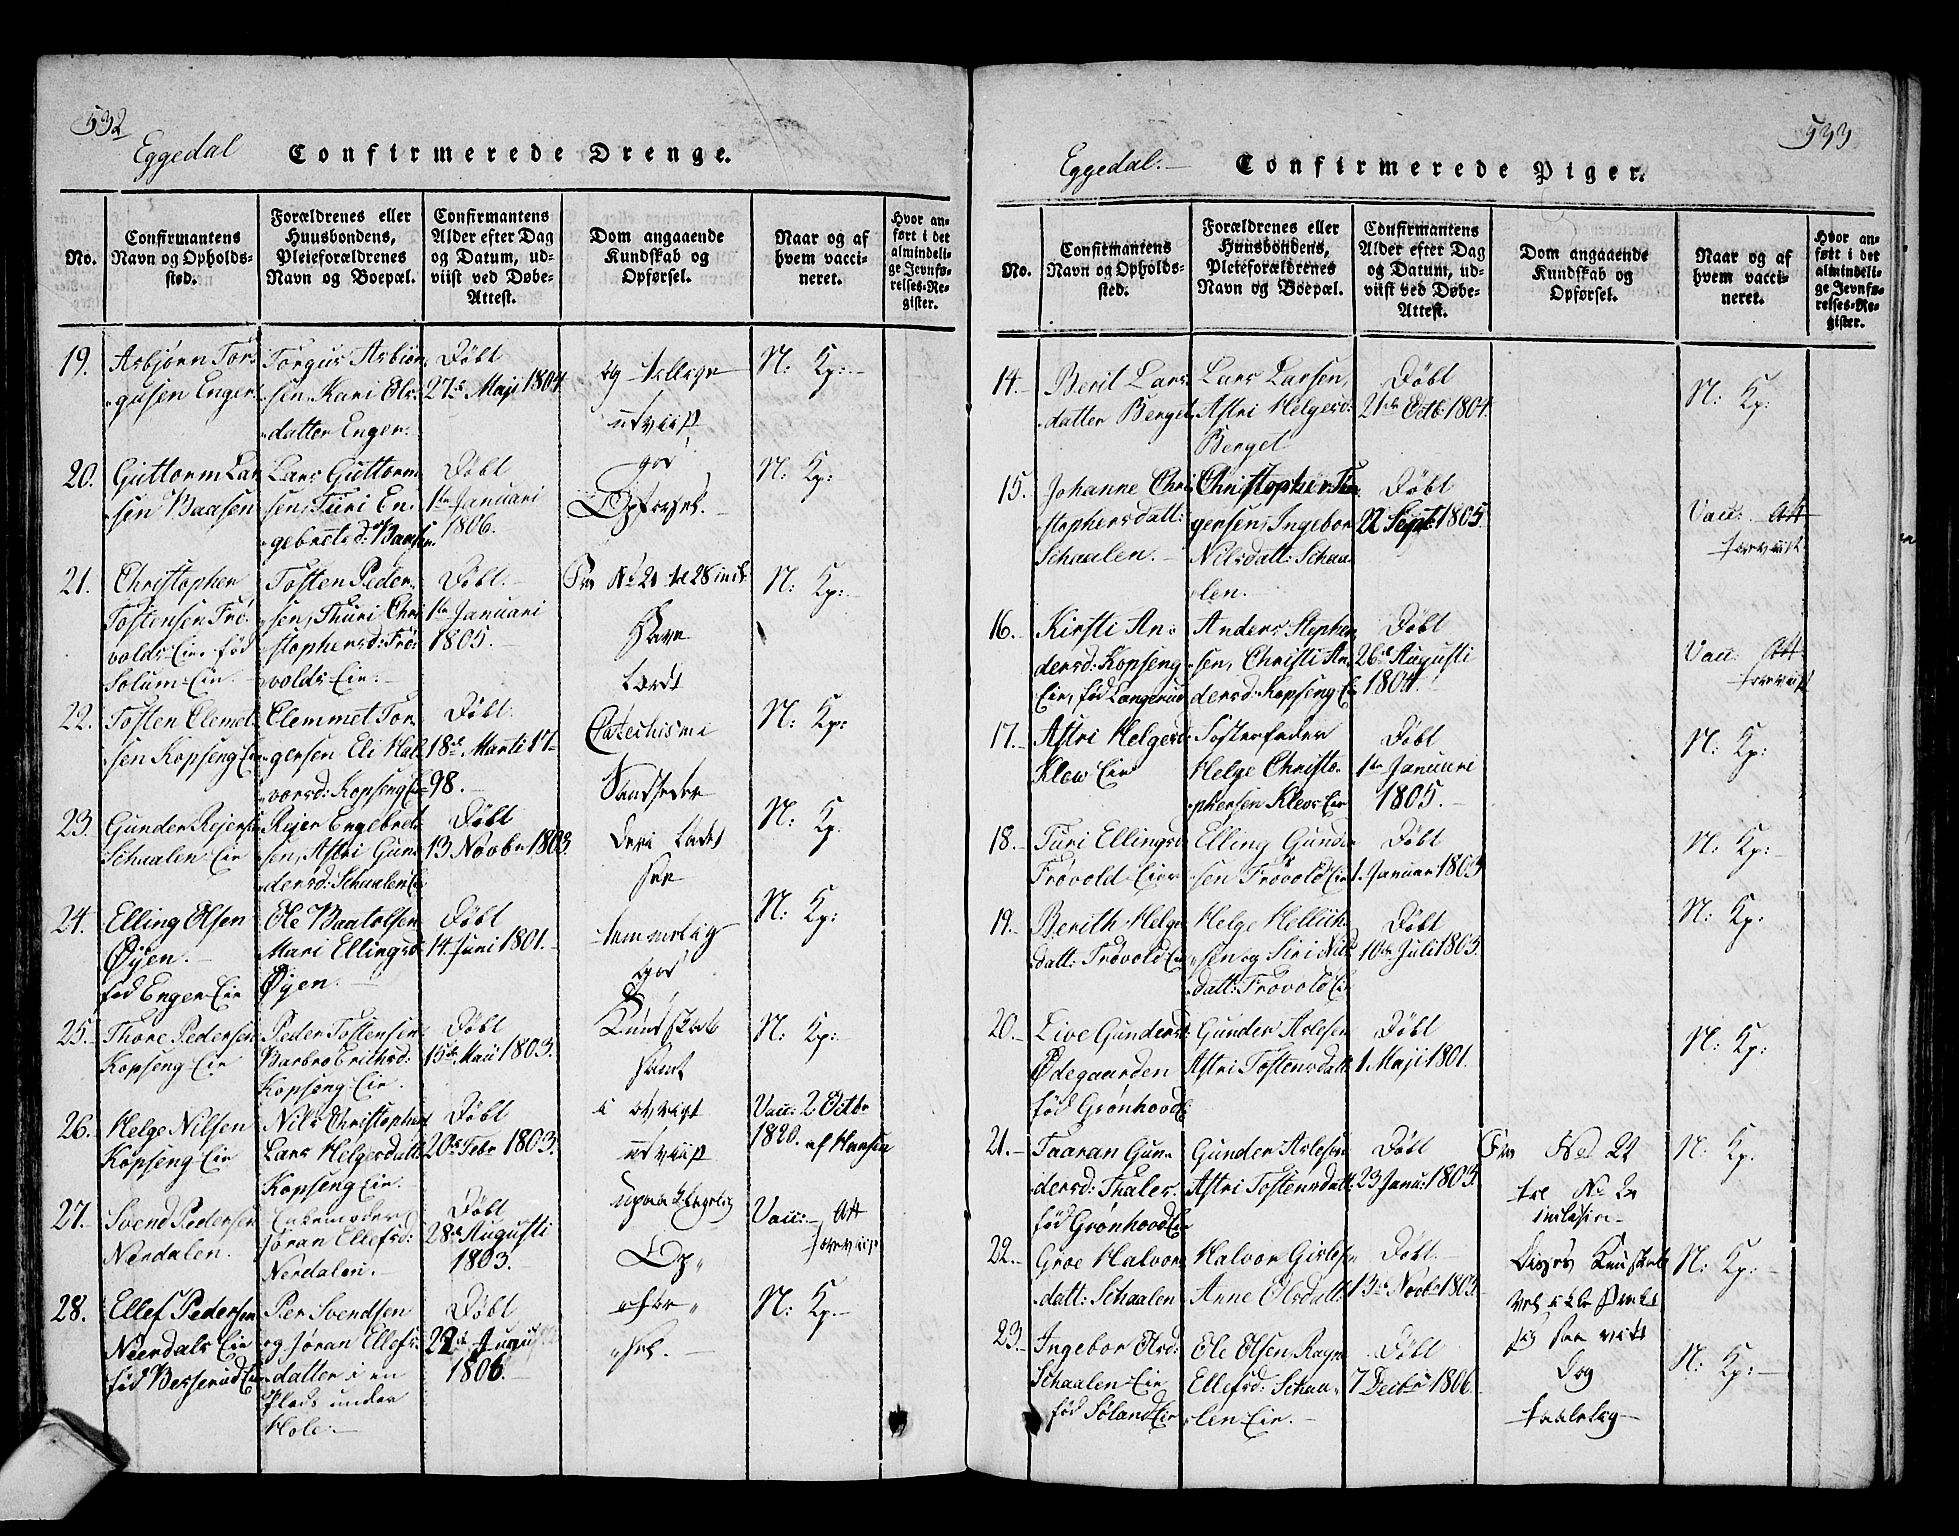 532
Eggedal Confirmerede Drenge.
No.
Confirmantens
Navn og Opholds-
sted.
Forældrenes eller
Huusbondens,
Pleieforældrenes
Navn og Boepæl.
Confirmantens
Alder efter Dag
og Datum, ud-
viist ved Døbe-
Attest.
Dom angaaende
Kundskab og
Opførsel.
Naar og af
hvem vacci-
neret.
Hvor an-
ført i det
almindeli-
ge Jevnfø-
relses-Re-
gister.
19.
Asbjørn Tor-
gusen Enger
Torgus Asbiørn
sen, Kari Ols-
datter Enger.
Døbt
27de Maji 1804
og
udviist
N: Kp:
20.
Guttorm Lar
sen Baasen
Lars Guttorm
sen, Turi En-
gebretsd: Baasen
Døbt
1te Januari
1806.
god
Opførsel.
N: Kp:
21.
Christopher
Tostensen Frø-
volds-Eie. fød
Solum-Eie.
Tosten Peder
sen, Thuri Chri
stophersd: Frø-
volds-Eie.
Døbt.
1te Januari
1805.
Fra No 21 til 28 incl.
Have
Lærdt
N: Kp:
22.
Tosten Clemet
sen Kopseng Eie
Clemmet Tor-
gersen Eli Hal
vorsd: Kopseng Eie
Døbt.
18de Marti 17-
98.
Catechismi
N: Kp:
23.
Gunder Rejersen
Schaalen Eie
Rejer Engebret
sen, Astri Gun
dersd: Schaalen Eie
Døbt
13 Novbr 1803.
N: Kp.
24.
Elling Olsen
Øyen.
fød Enger Eie
Ole Baatolsen
Mari Ellingsd
Øyen.
Døbt
14 Juni 1801.
temmelig
god
N: Kp:
25.
Thore Pedersen
Kopseng Eie
Peder Tostensen
Barbro Erichsd:
Kopseng Eie.
Døbt
15de Maii 1803.
Kundskab
samt
N: Kp:
26.
Helge Nilsen
Kopseng Eie
Nils Christophers
Lars Helgesdatt
Kopseng Eie.
Døbt
20de Febr 1803.
i øvrigt
udviist
Vacc: 2 Octbr
1820. af Hansen
27.
Svend Pedersen
Nerdalen.
Enkemoder
Jøran Ellefsd:
Nerdalen.
Døbt
28de Augusti
1803.
Op-
Vacc: Att
foreviist
28.
Ellef Pedersen
Neerdals Eie
fød Besserud Eie
Per Svendsen
og Jøran Ellefs-
datter i en
Plads under
Hole.
Døbt
22de August
1806.
-før-
-sel.
N: Kp.
533
Eggedal. Confirmerede Piger.
No.
Confirmantens
Navn og Opholds-
sted.
Forældrenes eller
Huusbondens,
Pleieforældrenes
Navn og Boepæl.
Confirmantens
Alder efter Dag
og Datum, ud-
viist ved Døbe-
Attest.
Dom angaaende
Kundskab og
Opførsel.
Naar og af
hvem vacci-
neret.
Hvor an-
ført i det
almindeli-
ge Jevnfø-
relses-Re-
gister.
14.
Berit Lars
datter Berget
Lars Larsen,
Astri Helgesd:
Berget
Døbt
21de Octb: 1804.
N: Kp:
15.
Johanne Chri
stophersdatt:
Schaalen.
Christopher Tor
gersen, Ingebor
Nilsdatt: Schaa-
len.
Døbt
22 Sept: 1805.
Vacc: Att
foreviist
16.
Kirsti An-
dersd: Kopseng
Eie, fød Langerud
Anders Stephen
sen, Christi An
dersd: Kopseng Eie
Døbt
26de Augusti
1804.
Vacc: Att
foreviist
17.
Astri Helgesd
Klew Eie
Fosterfader
Helge Christo-
phersen Klevs Eie
Døbt
1te Januari
1805.
N: Kp:
18.
Turi Ellingsd
Frøvold Eie
Elling Gunder
sen Frøvold Eie
Døbt
1. Januar 1803
N: Kp:
19.
Berith Helge
datt: Frøvold Eie
Helge Hellich
sen og Siri Nils
datt: Frøvold Eie
Døbt
10de Juli 1803.
N: Kp:
20.
Live Gundersd:
Ødegaarden
fød Grønhovd E
Gunder Aslesen
Astri Tostensdatt:
Døbt
1 Maji 1801.
N: Kp:
21.
Taaran Gun-
dersd: Thales
fød Grønhovd Eie
Gunder Aslesen
Astri Tostensdatt:
Døbt
23 Janu: 1803.
Fra No 21
til No 23
inclusive
N: Kp.
22.
Groe Halvors
datt: Schaalen
Halvor Gislesen
Anne Olsdatt:
Døbt.
13de Novbr 1803.
Disses Kundskab
N: Kp:
23.
Ingebor Olsd:
Schaalen Eie
fød Søland Eie
Ole Olsen Ragn
Ellefsd: Schaa-
len Eie.
Døbt
7 Decbr 1806.
sig saa vidt
Dog
taalelig
N: Kp: